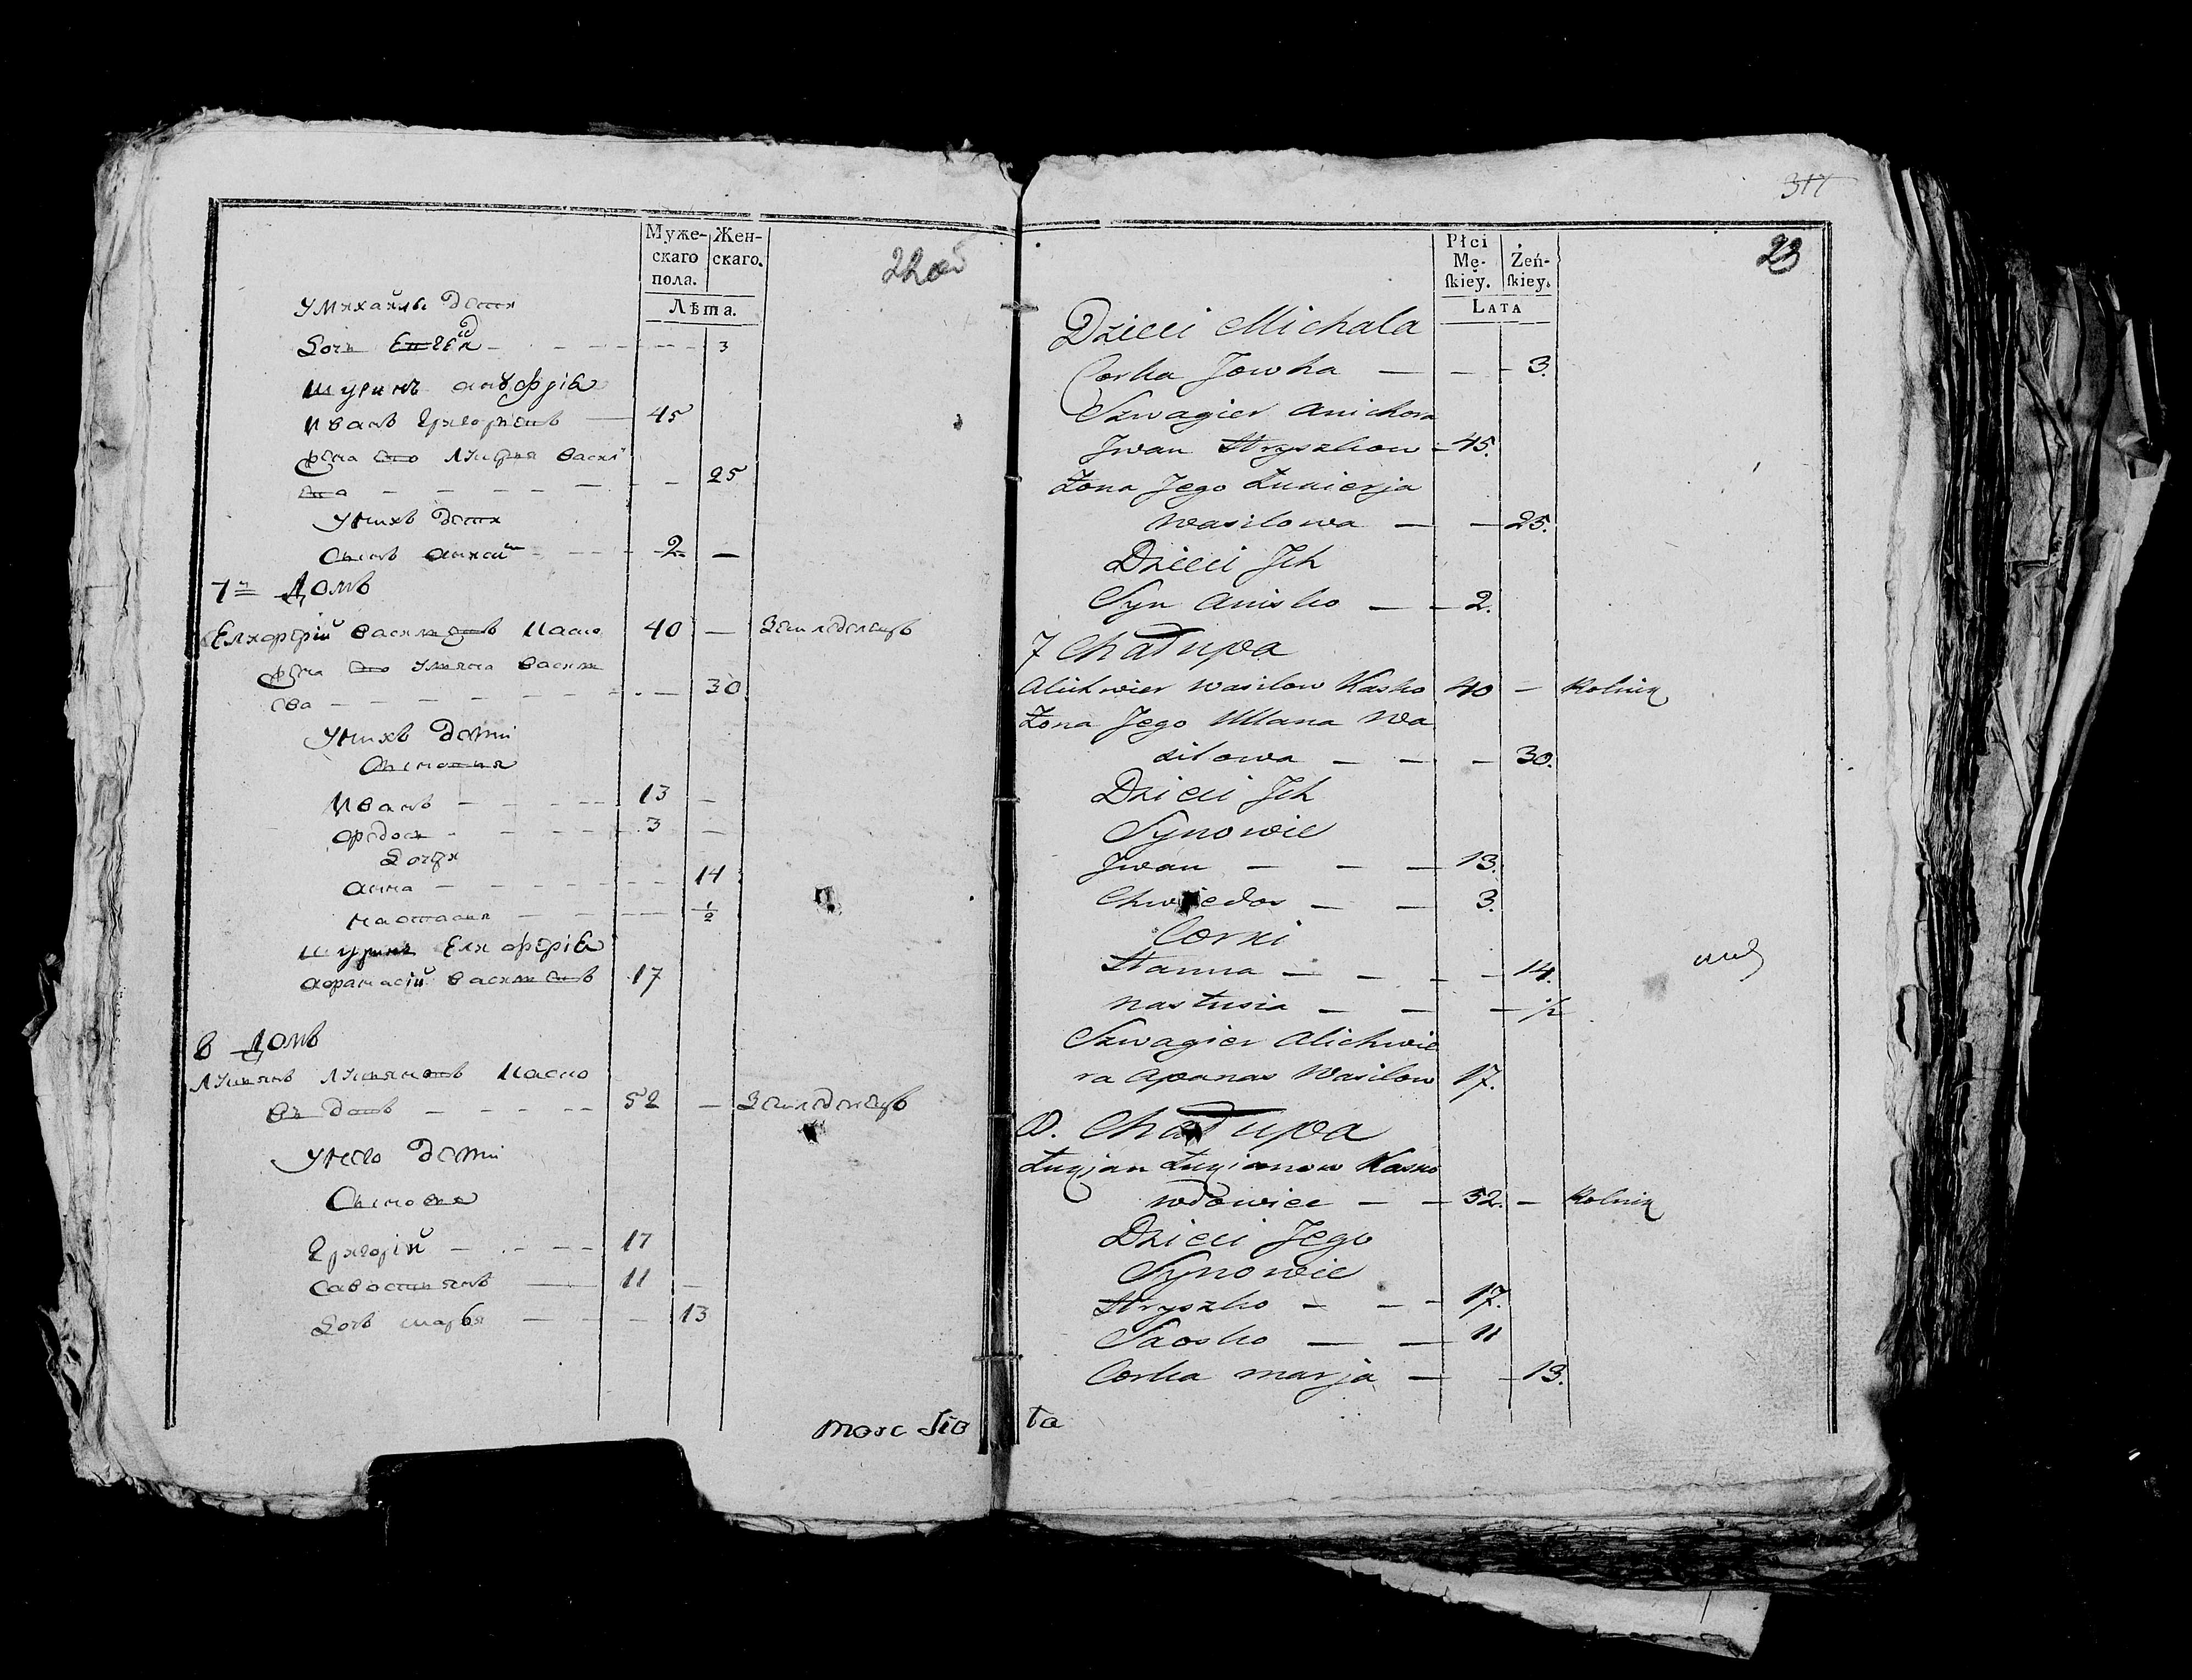 Муже-
скаго
пола.
Жен-
скаго.
Лѣта.
22 об
У Михайлы дѣти
Дочь 3
Шуринъ Ануфрія
Иванъ Григорьевъ 45
жена его Лукерья Васил
ва 25
У нихъ дѣти
Сынъ 2
7й Домъ
Елиферій Васильевъ Касько 40 Земледелецъ
жена его Ульяна Василь
ева 30
У нихъ дѣти
Сыновья
Иванъ 13
Федосъ 3
Дочери
Анна 14
Настасия 1/2
Шуринъ Елиферія
Афанасій Васильевъ 17
8 Домъ
Лукьянъ Лукьяновъ Касько
вдовъ 52 Земледелецъ
У него дѣти
Сыновья
Григорій 17
Савостьянъ 11
Дочь Марья 13
317
23
Płci
Mę-
skiey.
Żeń-
skiey.
LATA
Dzieci Michala
Corka Jowka 3.
Szwagier
Jwan Hryszkow 45.
Żona Jego Łukierja
Wasilowa 25.
Dzieci Jch
Syn Anisko 2.
7 Chałupa
Alichwier Wasilow Kasko 40 Rolnik
Żona Jego Ullana Wa
silowa 30.
Dzieci Jch
Synowie
Jwan 13.
Chwiedor 3.
Corki
Hanna 14.
Nastusia 1/2
Szwagier Alichwie
ra Apanas Wasilow 17.
8. Chałupa
Łukjan Łukianow Kasko
wdowiec 52. Rolnik
Dzieci Jego
Synowie
Hryszko 17.
11
Corka Marja 13.